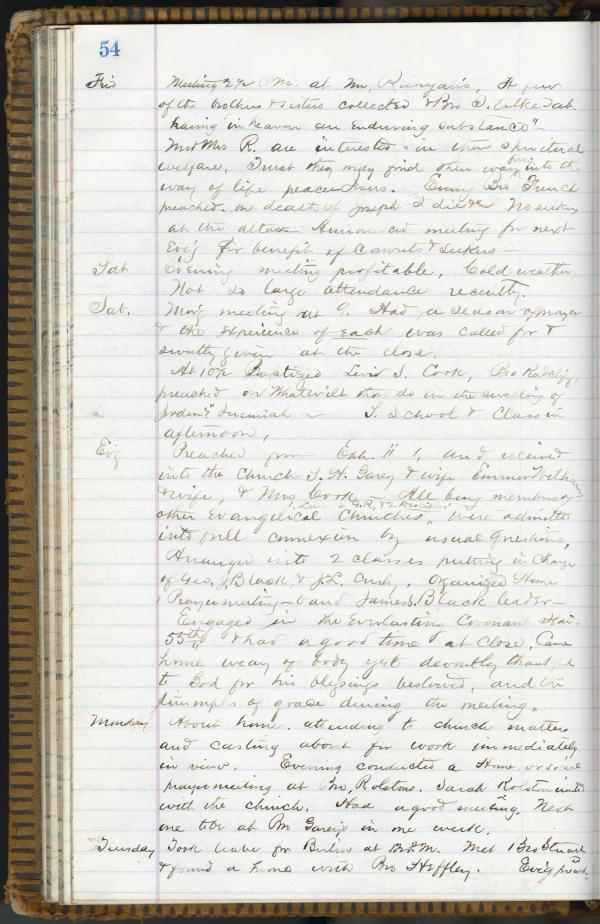 54
Fri Meeting 2 1/2 P.M. at Mr. Runyan's, A few
of the brothers & sisters collected & Bro talked ab.
having "in heaven an Enduring substance" -
Mr & Mrs R. are interested in their spiritual
welfare, Trust they may find their way into the
way of life peace Jesus. Evening Bro. French
preached on death of Joseph I die &c No seekers
at the altar meeting for next
Ev'g for benefit of Converts & Seekers -
Sat Evening meeting profitable, Cold weather
Not so large attendance recently.
Sab. Morg meeting at 9. Had a season of prayer
& the experience of each was called for &
given at the close.
At 10 1/2 Baptized Levi S. Cook, Bro Radcliff
preached on What wilt thou do in the swelling of
Jordan" Jeremiah - S. School & Class in
afternoon,
Ev'g Preached from Eph. " 1, and received
into the Church T. H. Garey & wife Emmer William
& wife, & Mrs Cook - All being members of
other Evangelical Churches, were admitted
into full connexion by usual questions,
Arranged into 2 classes putting in Charge
of Geo. J. Black & J. L. Curly, Organized Home
Prayer meeting - band James S. Black leader -
Engaged in the Everlasting Covenant Isai.
55th & had a good time at close. Came
home weary of body yet devoutly thankful
to God for his blessings bestowed, and the
triumphs of grace during the meeting.
Monday About home. attending to church matters
and casting about for work immediately
in view. Evening conducted a Home
prayer meeting at Bro, Rolstons. Sarah Rolston united
with the church. Had a good meeting. Next
one to be at Bro Garey's in one week.
Tuesday Took leave for Berlin at M. Met Bro Stuart
& found a home with Bro Heffley. Ev'g preach'd